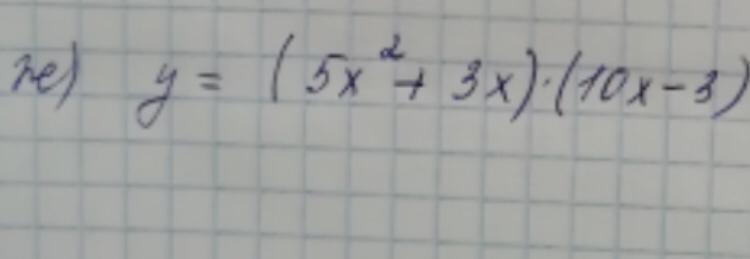 ж) y = (5x² + 3x)·(10x - 3)